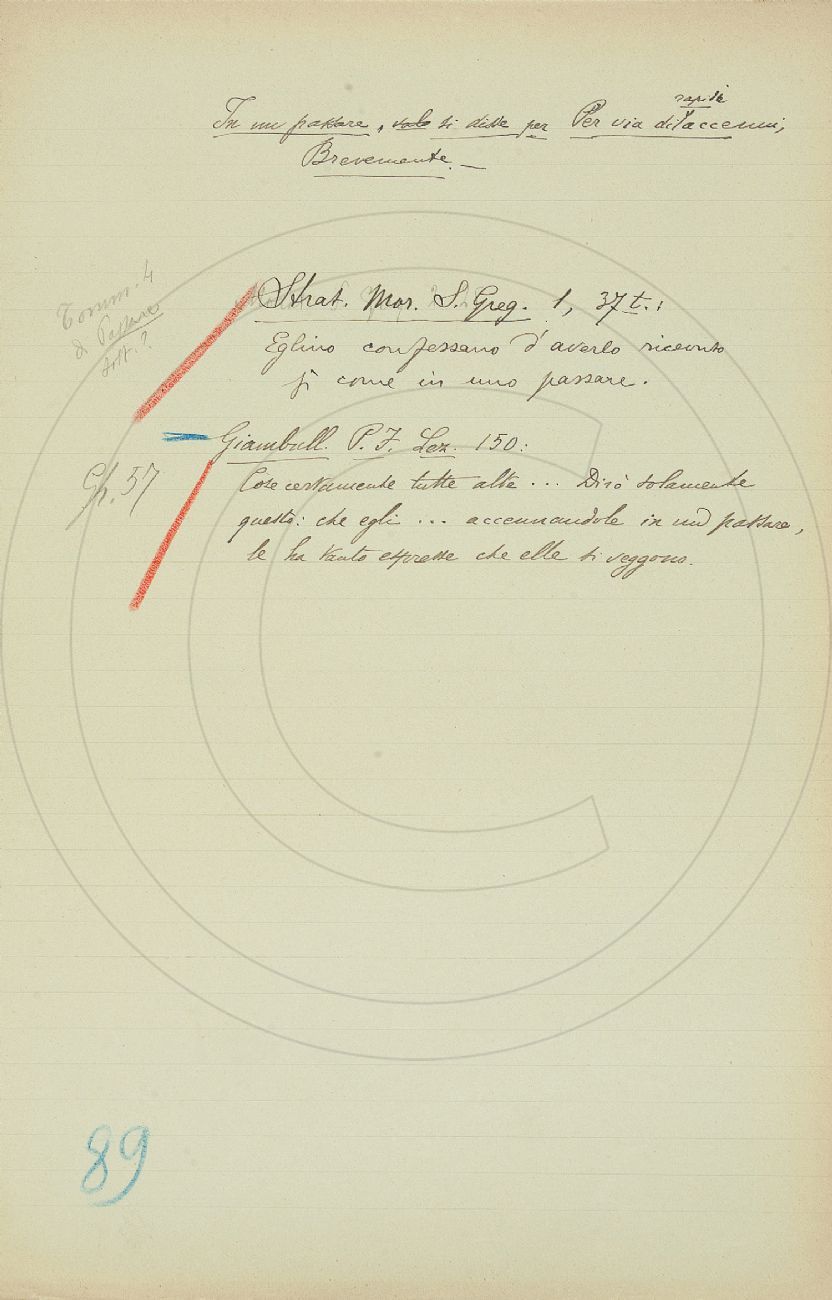 In un passare, vale si disse per Per via di rapidi accenni,
Brevemente. —
Tomm. 4
Strat. Mor. S. Greg. 1, 37 t.:
Passare
Eglino confessano d'averlo ricevuto
sott.?
sì come in uno passare.
Giambull. P. F. Lez. 150:
Gh. 57
Cose certamente tutte alte ... Dirò solamente
questo: che egli ... accennandole in un passare,
le ha tanto espresse che elle si veggono.
89